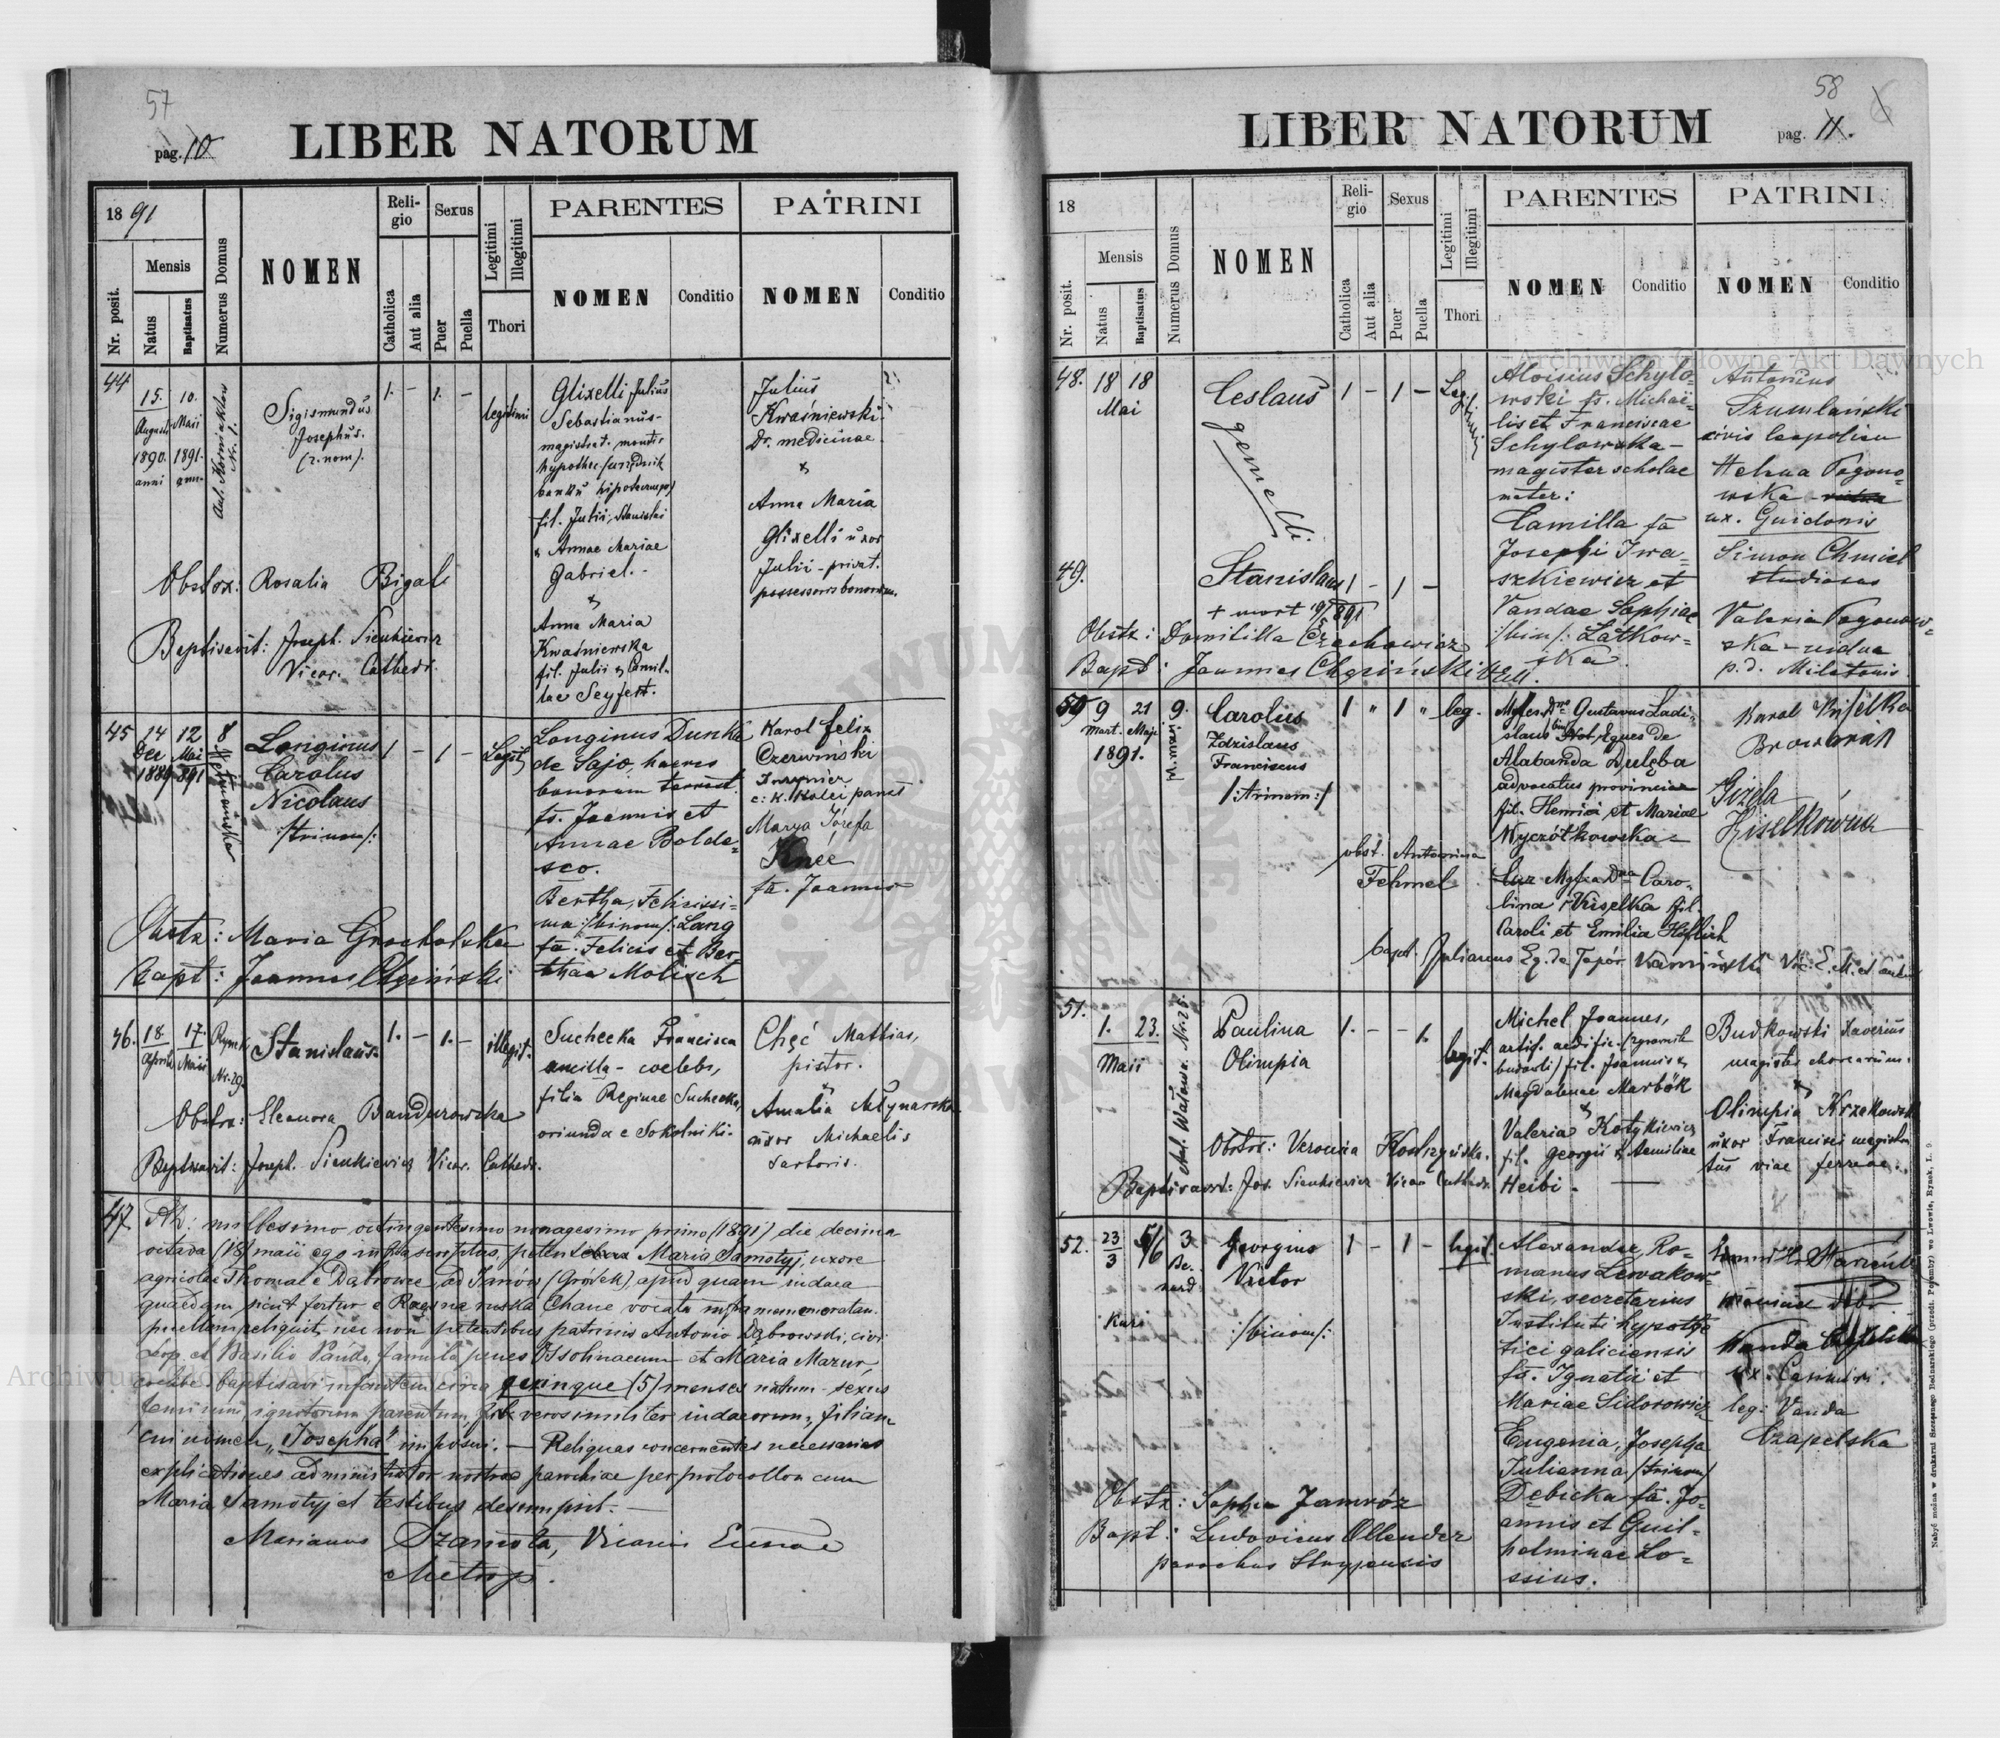 57
pag. 10
LIBER NATORUM
1891
Nr. posit.
Mensis
Natus
Baptisatus
Numerus Domus
NOMEN
Religio
Catholica
Aut alia
Sexus
Puer
Puella
Legitimi
Illegitimi
Thori
PARENTES
NOMEN
Conditio
PATRINI
NOMEN
Conditio
44
15.
Augusti
1890.
anni
10.
Maii
1891.
Nr. 1.
Sigismundus
Josephus.
(2. nom).
1. - 1. -
legitimi
Glixelli Julius
Sebastianus -
magistrat. montis
hypothec. (urzędnik
banku hipotecznego)
fil. Julii, Stanislai
& Annae Mariae
Gabriel. -
&
Anna Maria
Kwaśniewska
fil. Julii & Camil-
lae Seyfert.
Julius
Kwaśniewski
Dr. medicinae.
&
Anna Maria
Glixelli uxor
Julii - privat.
possessoris bonorum.
Obstetx: Rosalia Bigale
Baptisavit: Joseph. Sienkiewicz
Vicar. Cathedr.
45
14
Dec
1889
12
Mai
891
8
Longinus
Carolus
Nicolaus
/trinom/:
1 - 1 -
Legit
Longinus Dunka
de Sajo, haeres
bonorum terrest.
fs. Joannis et
Annae Bolde-
sco.
Bertha, Felicissi-
ma :/binom/: Lang
fa. Felicis et Ber-
thae Molisch
Karol Felix
Czerwiński
Inżynier
c: k. Kolei państ
Marya Józefa
Knée
fa. Joannis
Obstx: Maria Grocholska
Bapt: Joannes Chęciński
46.
18
Aprilis
17.
Maii
Rynek
Nr. 29.
Stanislaus.
1. - 1. -
illegit.
Suchecka Francisca
ancilla - coelebs,
filia Reginae Suchecka,
oriunda e Sokolniki.
Chęć Mathias,
pistor.
&
Amalia Młynarska
uxor Michaelis
Sartoris.
Obstetx: Eleonora Bandurowska
Baptisavit: Joseph. Sienkiewicz Vicar. Cathedr.
47
NB: millesimo octingentesimo nonagesimo primo (1891) die decima
octava (18) maii ego infrascriptus, petente Maria Samotyj, uxore
agricolae Thomae e Dąbrowce, ad Janów (Gródek), apud quam iudaea
quaedam sicut fertur e Rawa ruska Chane vocata inframemoratam
puellam reliquit, nec non petentibus patrinis Antonio Dąbrowski, civi
Leop. et Basilio Panda, famulo penes Ossolinaeum et Maria Mazur
coelebe baptisavi infantem circa quinque (5) menses natum - sexus
feminini, ignotorum parentum, verosimiliter iudaeorum, filiam
cui nomen "Josepha" imposui. - Reliquas concernentes necessarias
explicationes administrator nostrae parochiae per protocollon cum
Maria Samotyj et testibus desumpsit. -
Marianus Szamota, Vicarius Eccnae
Metrop.
58
pag. 11.
LIBER NATORUM
18
Nr. posit.
Mensis
Natus
Baptisatus
Numerus Domus
NOMEN
Religio
Catholica
Aut alia
Sexus
Puer
Puella
Legitimi
Illegitimi
Thori
PARENTES
NOMEN
Conditio
PATRINI
NOMEN
Conditio
48.
18 18
Mai
Ceslaus
gemelli
1 - 1 -
Legitimi
Aloisius Schylo-
wski fs. Michaë-
lis et Franciscae
Schylowska -
magister scholae
mater:
Camilla fa
Josephi Iwa-
szkiewicz et
Vandae Sophiae
/bin/: Latkow-
ska.
Antonius
Szumlański
civis leopolien
Helena Pogono-
wska
ux. Guidonis
Simon Chmiel
studiosus
Valeria Pogonow-
ska - vidua
p. d. Miletonis
49.
Stanislaus
1 - 1 -
+ mort 19/5 891
Obstx: Domitilla Czechowicz
Bapt: Joannes Chęciński
50
9
Mart.
21
Maji
1891.
9.
Carolus
Zdzislaus
Franciscus
/:trinom:/
1 " 1 "
leg.
Mgfcs Dnus Gustavus Ladi-
slaus Not. Eques de
Alabanda Dulęba
advocatus provincialis
fil. Henrici et Mariae
Wyczółkowska -
Mgfca Dna Caro-
lina Kiselka fil.
Caroli et Emilia Heflich
Karol Kiselka
Browarnik
Gizela
Kiselkówna
obst. Antonina
Fehmel
bapt. Julianus Eq. de Topór Kamiński Vic. E. M.
51.
1. 23.
Maii
Nr. 25.
Paulina
Olimpia
1. - - 1.
legit.
Michel Joannes,
artif. aedific.
fil. Joannis &
Magdalenae Marbök
&
Valeria Kotykiewicz
fil. Georgii & Aemiliae
Heibi -
Budkowski Xaverius
magister chorearum.
&
Olimpia Krzakowska
uxor Francisci magistra-
tus viae ferreae.
Obstetx: Veronica Kostrzyńska.
Baptisavit: Jos. Sienkiewicz Vicar Cathedr.
52.
23
3
5/6
3
Georgius
Victor
:/binom/:
1 - 1 -
legit.
Alexander, Ro-
manus Lewakow-
ski, secretarius
Instituti hypothe
tici galiciensis
fs. Ignatii et
Mariae Sidorowicz
Eugenia, Josepha
Julianna /trinom/
Dębicka fa. Jo-
annis et Guil-
helminae Lo-
ssius.
Wanda Czapelska
ux. Casimiri.
leg: Vanda
Czapelska
Obstx: Sophia Jamróz
Bapt: Ludovicus Ollender
parochus Stryjensis
Nabyć można w drukarni Szczęsnego Bednarskiego (przedt. Poremby) we Lwowie, Rynek, L. 9.
Archiwum Główne Akt Dawnych
Archiwum Główne Akt Dawnych